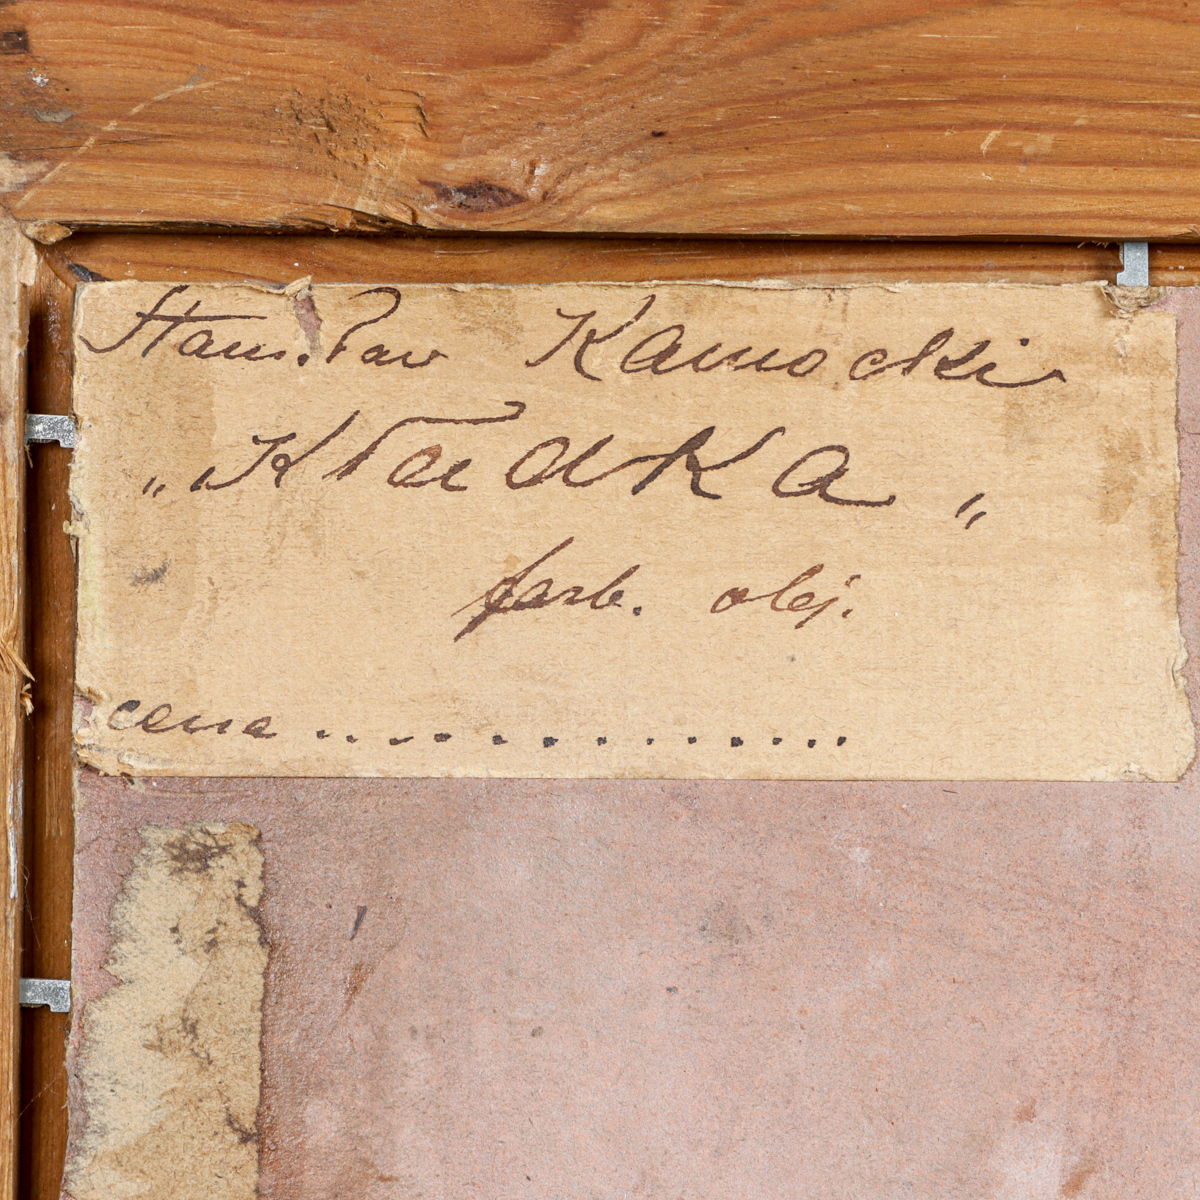 Stanisław Kamocki
„Kładka„
farb. olej.
cena ..............